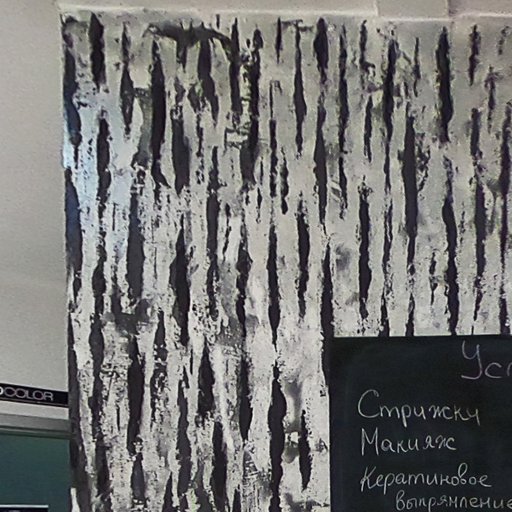 Ус
COLOR
Стрижки
Макияж
Кератиновое
выпрямление